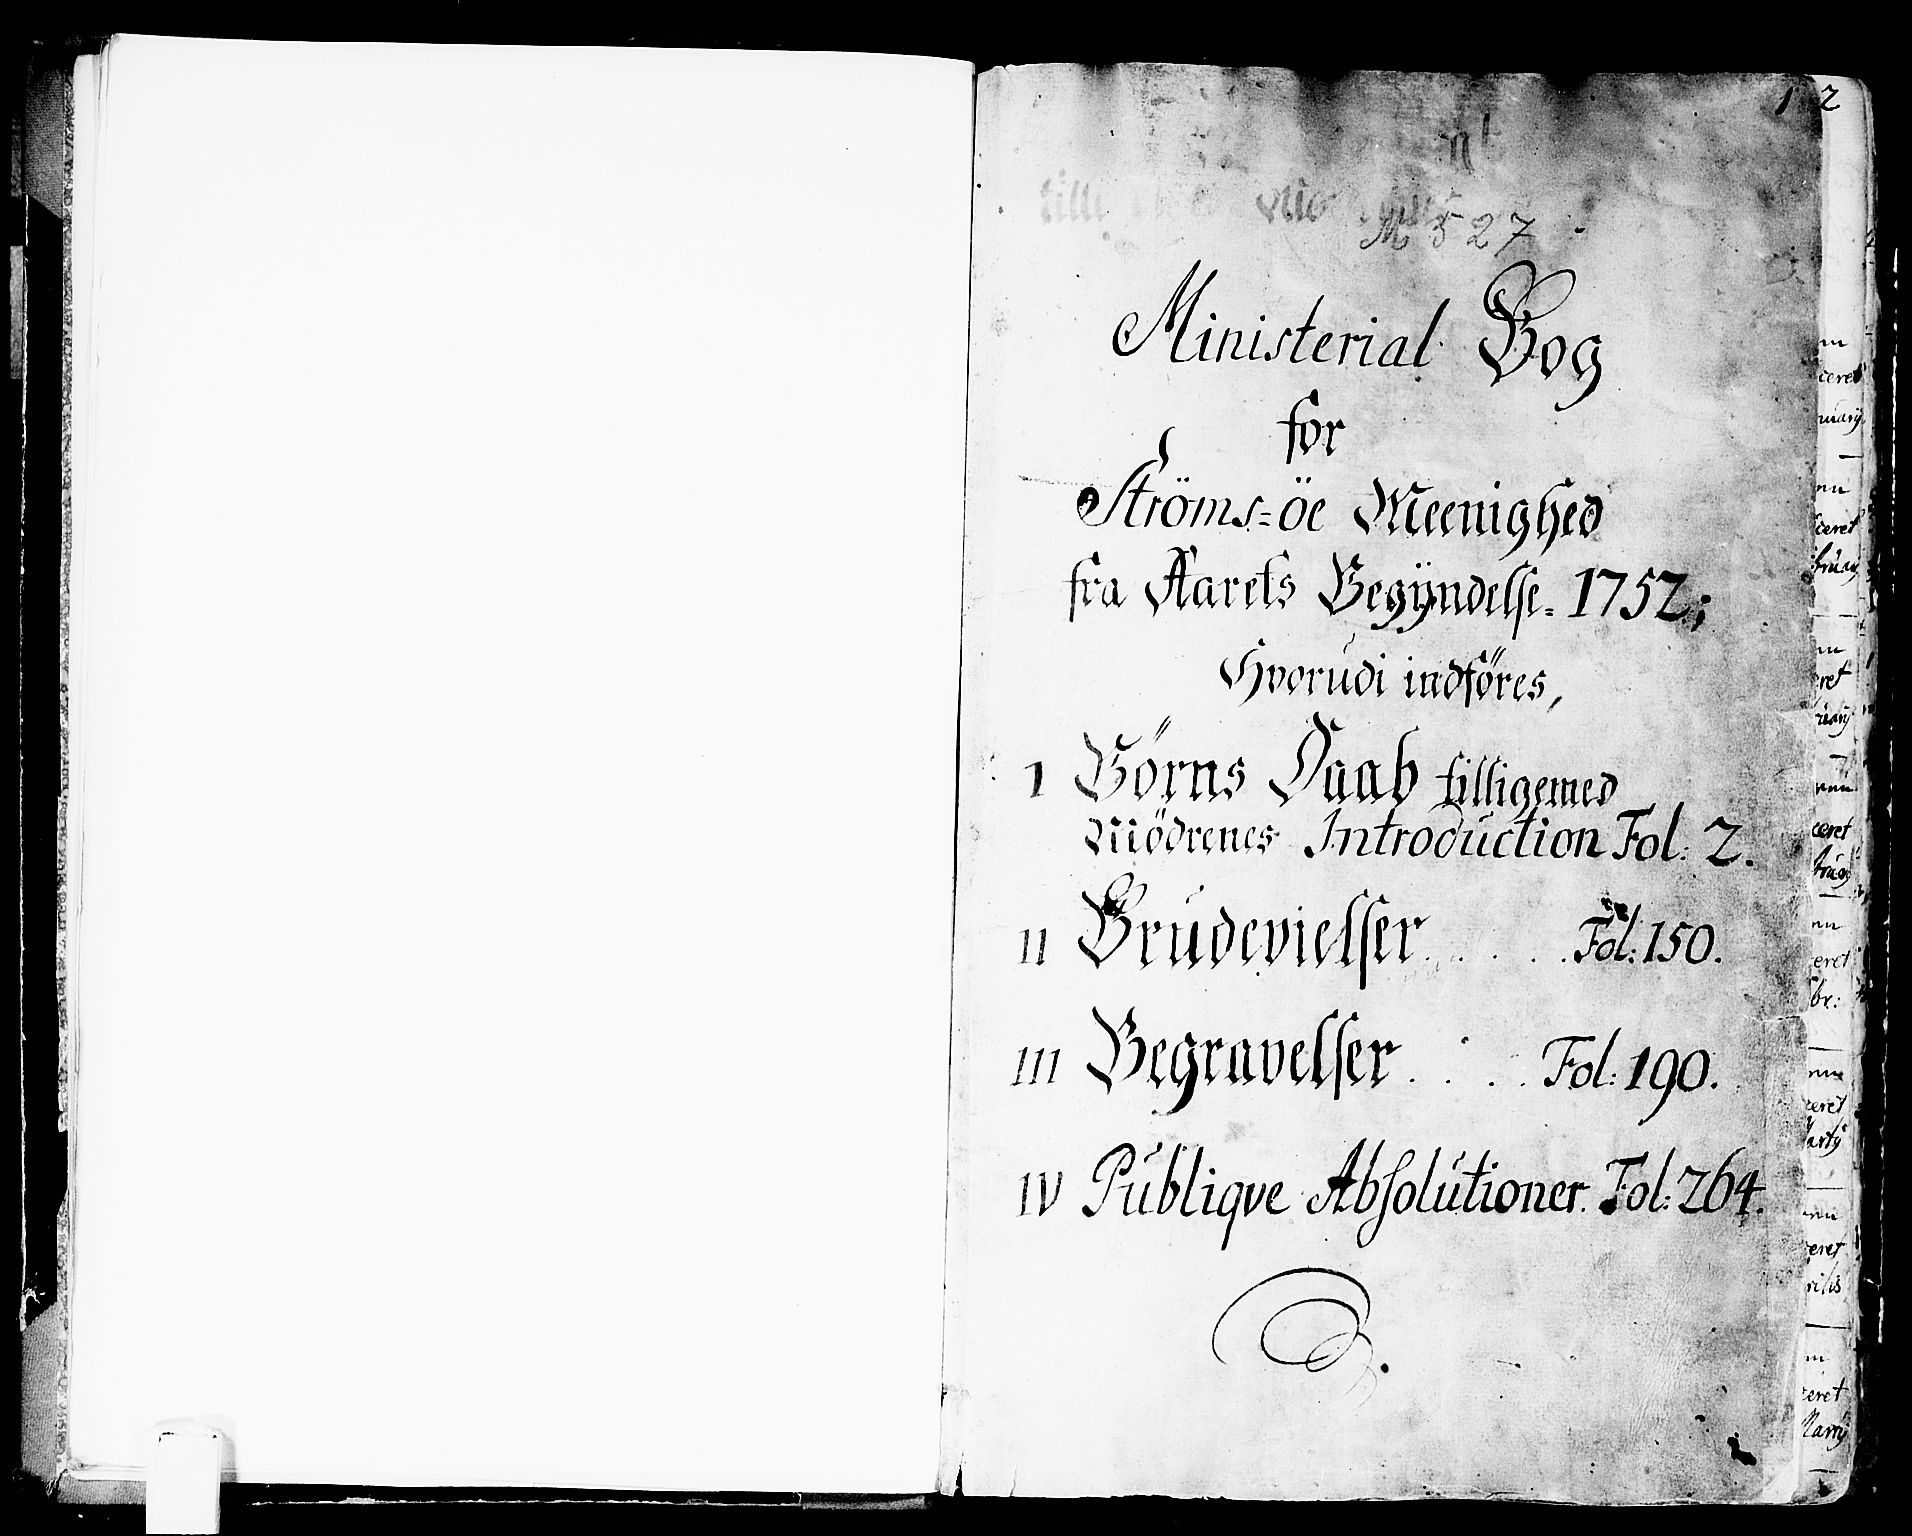 1
2
M 527
Ministerial Bog
for
Ströms=öe Meenighed
fra Aarets Begÿndelse= 1752;
Hvorudi indföres,
I Börns Daab tilligemed
Mödrenes Introduction Fol: 2.
II Brudevielser . . . . Fol: 150.
III Begravelser . . . . Fol: 190.
IV Publiqve Absolutioner. Fol: 264.